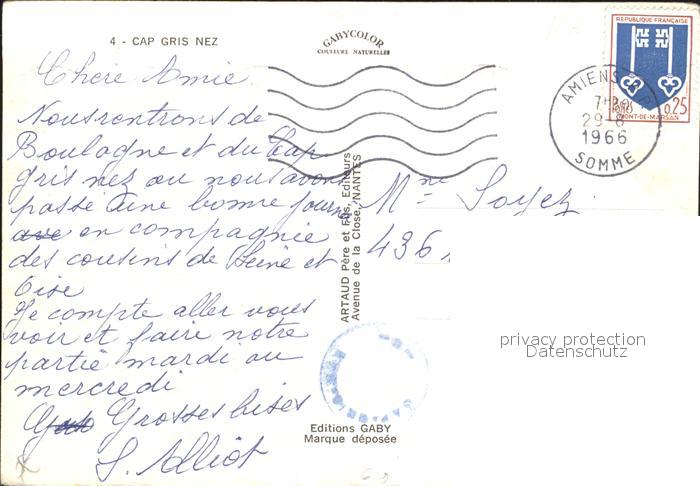 4 - CAP GRIS NEZ
GABYCOLOR
COULEURS NATURELLES
REPUBLIQUE FRANÇAISE
0,25
MONT-DE-MARSAN
AMIENS
29-8
1966
SOMME
Chère Amie
Nous rentrons de
Boulogne et du Cap
gris nez ou nous avons
passé une bonne journ
en compagnie
des cousins de Seine et
Oise
Je compte aller vous
voir et faire notre
partie mardi ou
mercredi
Grosses bises
S. Alliot
Mme Soyez
436
ARTAUD Père et Fils, Editeurs
Avenue de la Close, NANTES
privacy protection
Datenschutz
Editions GABY
Marque déposée